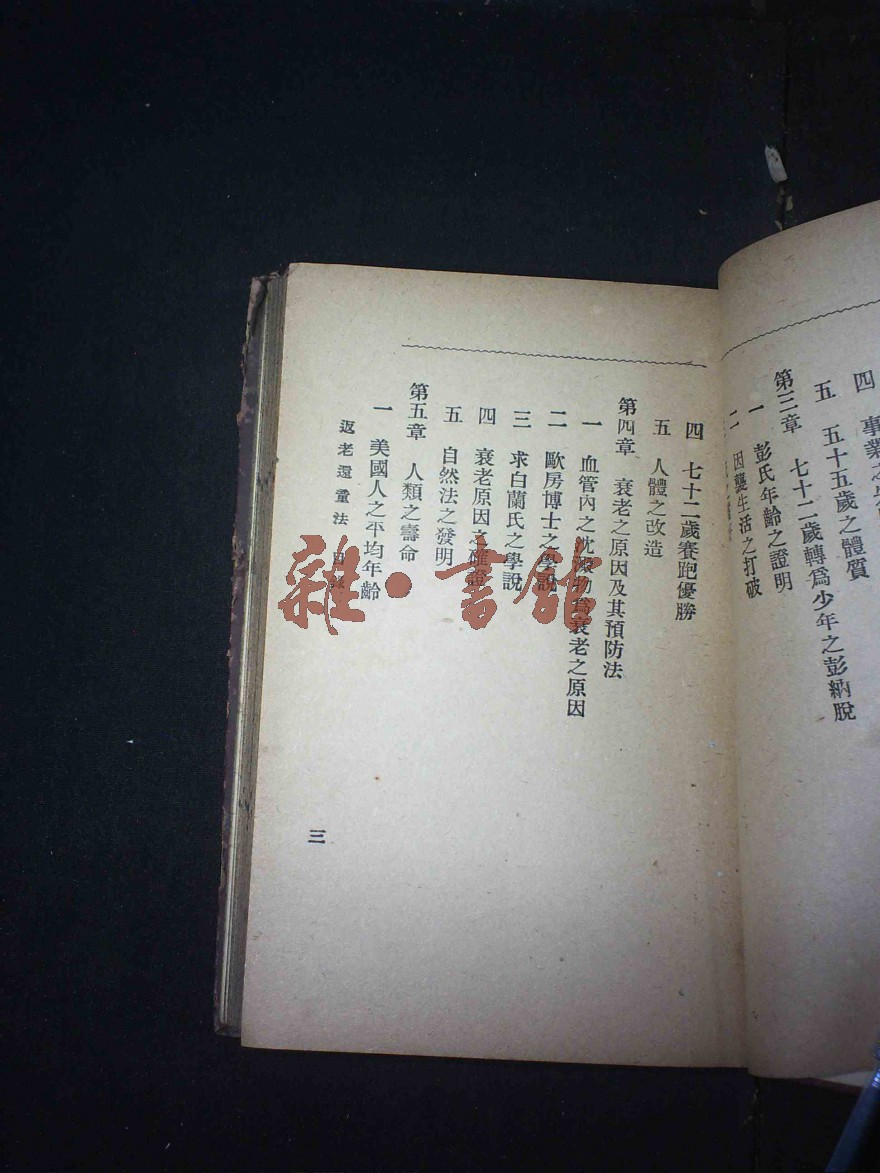 四
五 五十五歲之體質
第三章 七十二歲轉爲少年之彭納脫
一 彭氏年齡之證明
二 因襲生活之打破
四 七十二歲賽跑優勝
五 人體之改造
第四章 衰老之原因及其預防法
一 血管內之沈澱物爲衰老之原因
二 歐房博士之學說
三 求白蘭氏之學說
四 衰老原因之確證
五 自然法之發明
第五章 人類之壽命
一 美國人之平均年齡
返老還童法 目錄
三
雜·書館